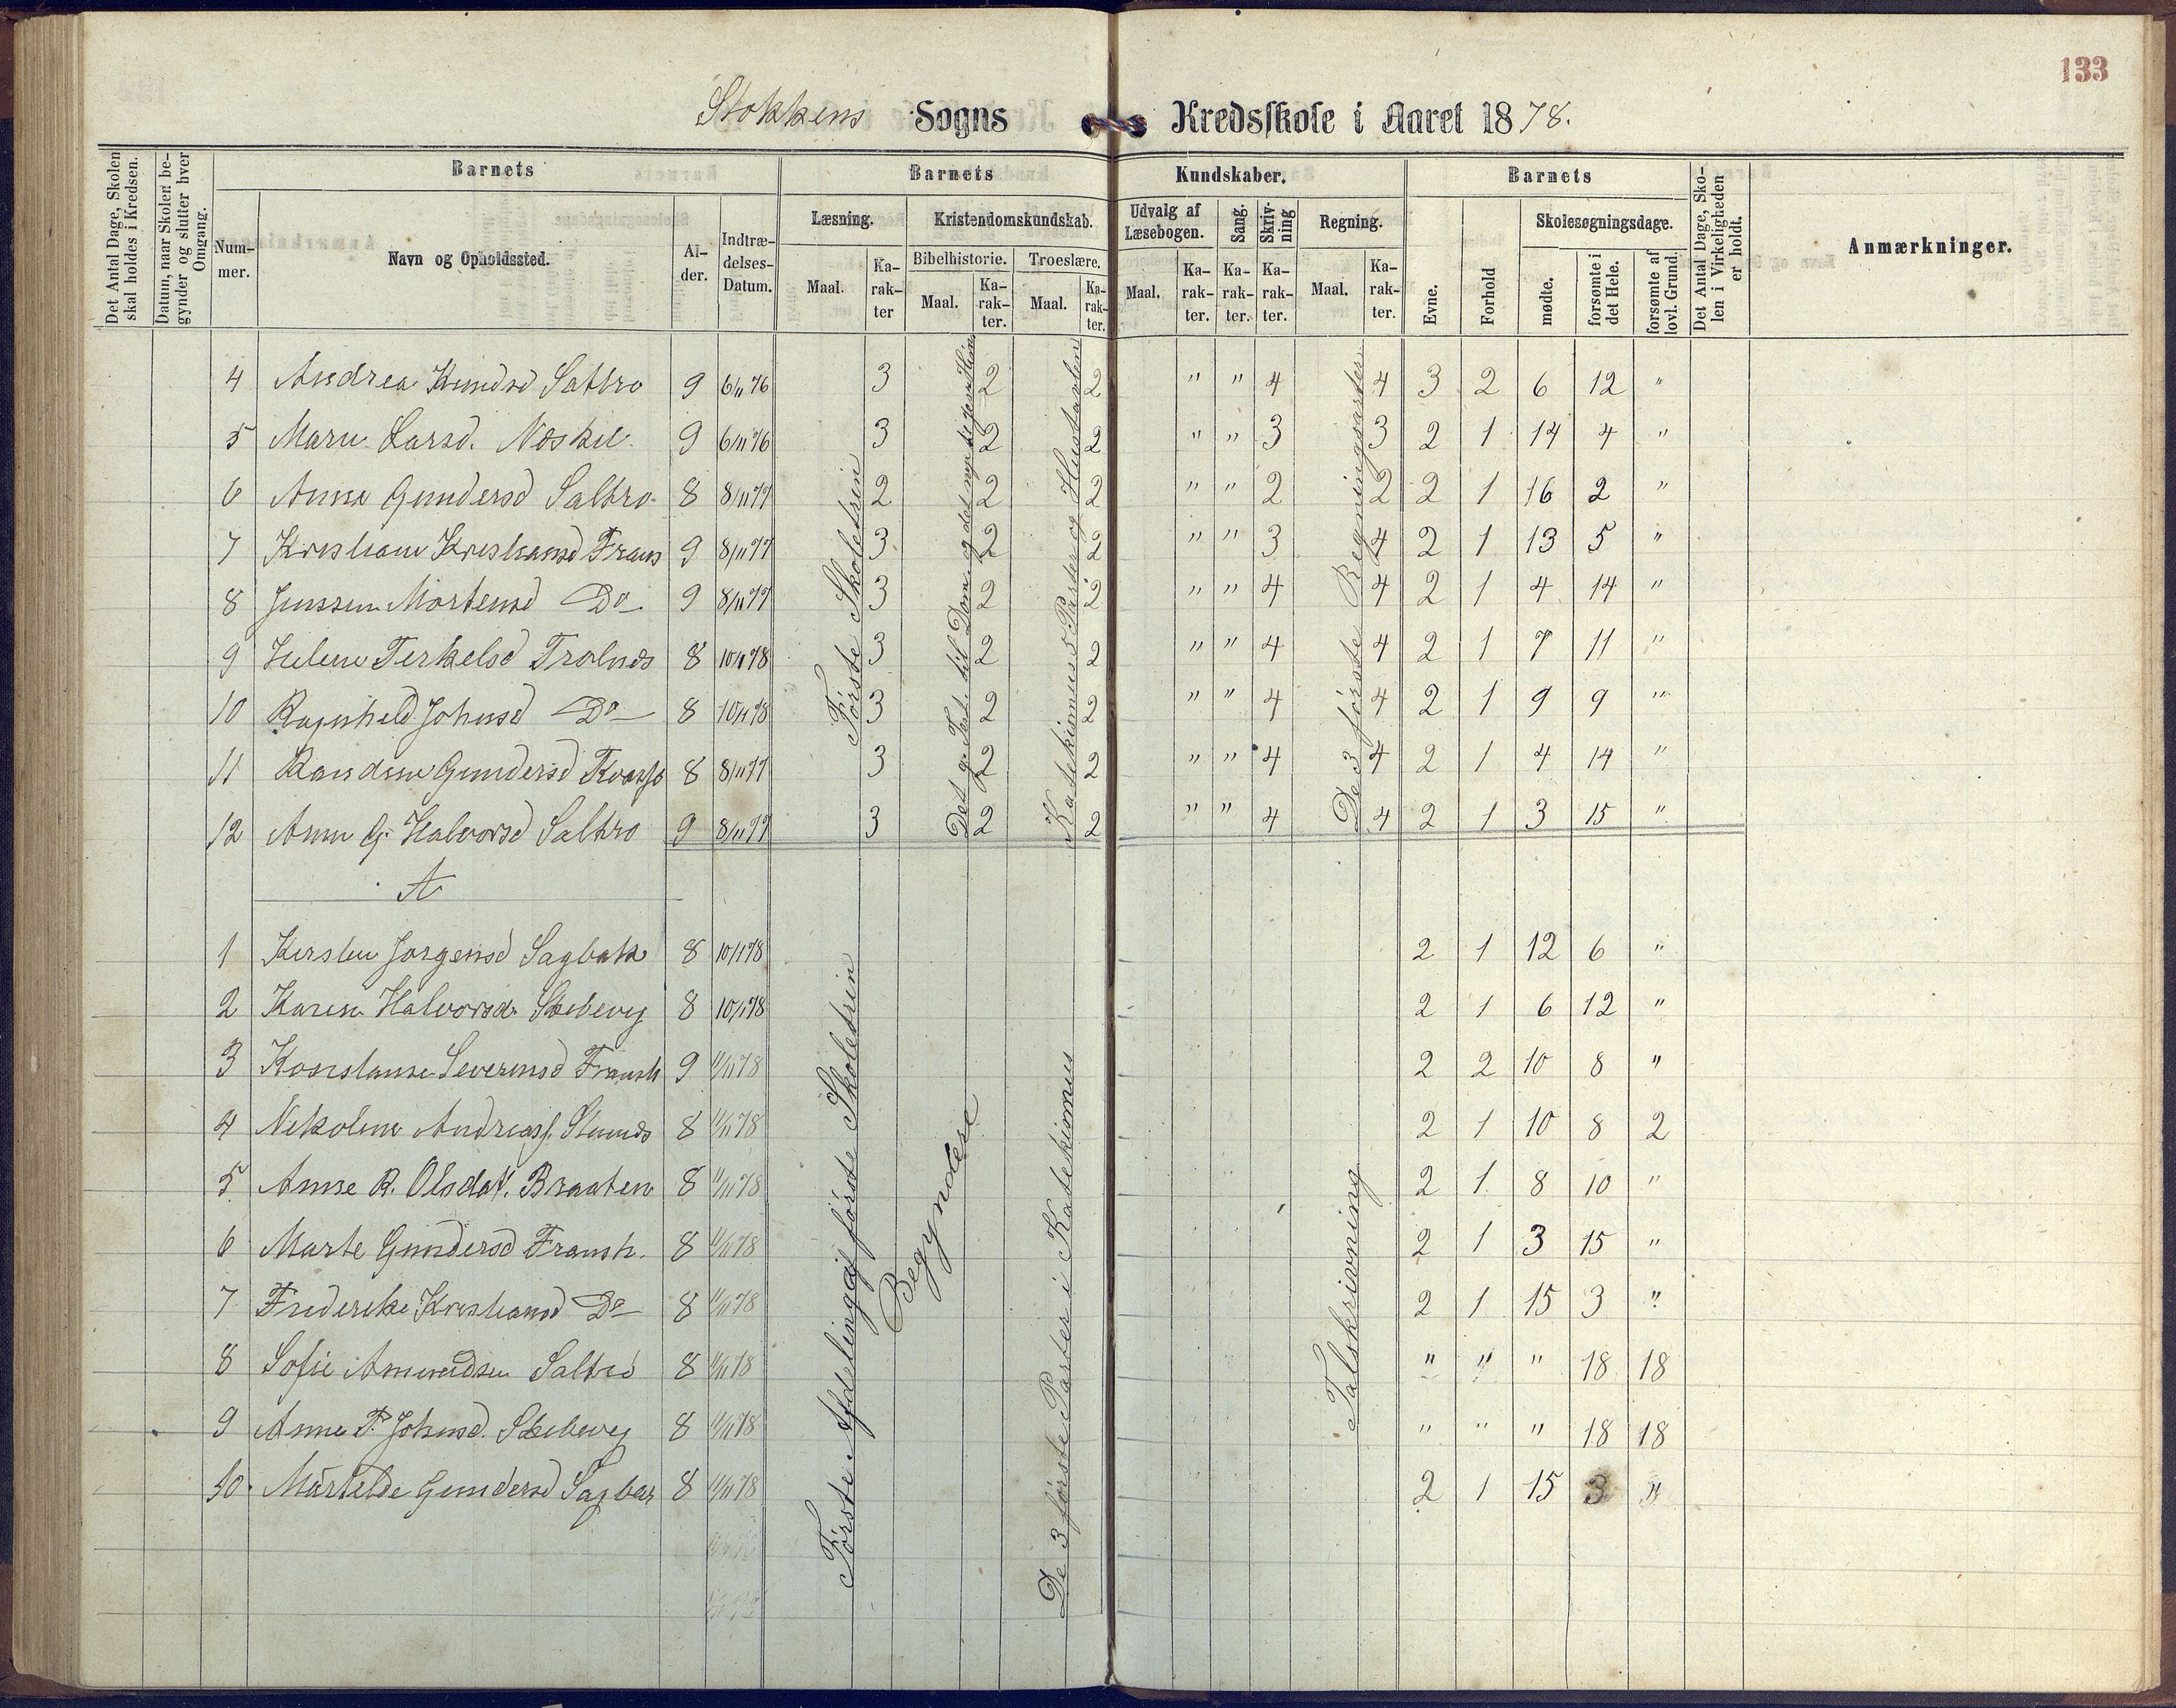 133
Stokkens Sogns Kredsskole i Aaret 1878.
Det Antal Dage, Skolen skal holdes i Kredsen.
Datum, naar Skolen begynder og slutter hver Omgang.
Barnets
Nummer.
Navn og Opholdssted.
Alder.
Indtrædelses-Datum.
Barnets Kundskaber.
Læsning.
Maal. Karakter
Kristendomskundskab.
Bibelhistorie. Troeslære.
Maal. Karakter. Maal. Karakter.
Udvalg af Læsebogen.
Maal. Karakter.
Sang. Karakter.
Skrivning Karakter.
Regning.
Maal. Karakter.
Barnets
Evne.
Forhold
Skolesøgningsdage.
mødte.
forsømte i det Hele.
forsømte af lovl. Grund.
Det Antal Dage, Skolen i Virkeligheden er holdt.
Anmærkninger.
4 Andrea Knudsd Saltro 9 6/11 76 3 2 2 " " 4 4 3 2 6 12 "
5 Maru Larsd. Neskil 9 6/11 76 3 2 2 " " 3 3 2 1 14 4 "
6 Anne Gundersd Saltro 8 8/11 77 2 2 2 " " 2 2 2 1 16 2 "
7 Kristiane Kristiansd Frans 9 8/11 77 3 2 2 " " 3 4 2 1 13 5 "
8 Jenssine Mortensd Do 9 8/11 77 3 2 2 " " 4 4 2 1 4 14 "
9 Helene Terkelsd Trolnes 8 10/1 78 3 2 2 " " 4 4 2 1 7 11 "
10 Ragnhild Johnsd Do 8 10/1 78 3 2 2 " " 4 4 2 1 9 9 "
11 Gundersd 8 8/11 77 3 2 2 " " 4 4 2 1 4 14 "
12 Anne G. Halvorsd Saltro 9 8/11 77 3 2 2 " " 4 4 2 1 3 15 "
Første Skoletrin
Katekismus 5 Parter og Hustavlen
De 3 første Regningsarter
A
1 Kirsten Jorgensd Sagbak 8 10/1 78 2 1 12 6 "
2 Karen Halvorsd. Skibevig 8 10/1 78 2 1 6 12 "
3 Konstanse Severinsd Fransh 9 11/11 78 2 2 10 8 "
4 Nikoline Andreasf. 8 11/11 78 2 1 10 8 2
5 Anne R. Olsdat. Braaten 8 11/11 78 2 1 8 10 "
6 Marte Gundersd Fransh. 8 11/11 78 2 1 3 15 "
7 Frederike Kristiansd Do 8 11/11 78 2 1 15 3 "
8 Sofie Amundsen Saltro 8 11/11 78 " " " 18 18
9 Anne T. Johnsd. Skibevig 8 11/11 78 " " " 18 18
10 Martilde Gundersd Sagbak 8 11/11 78 2 1 15 3 "
Første Afdeling af første Skoletrin
Begyndere
De 3 første Parter i Katekismus
Talskrivning